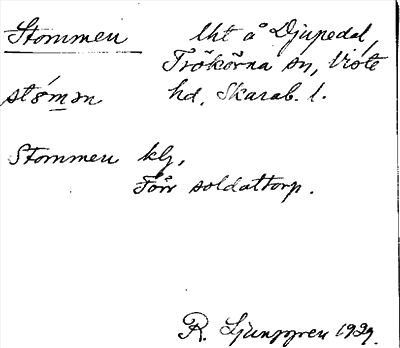 Stommen lht å Djupedal,
Trökörna sn, Viste
stómən hd, Skarab. l.
Stommen klg,
Förr soldattorp.
R. Ljunggren 1929.